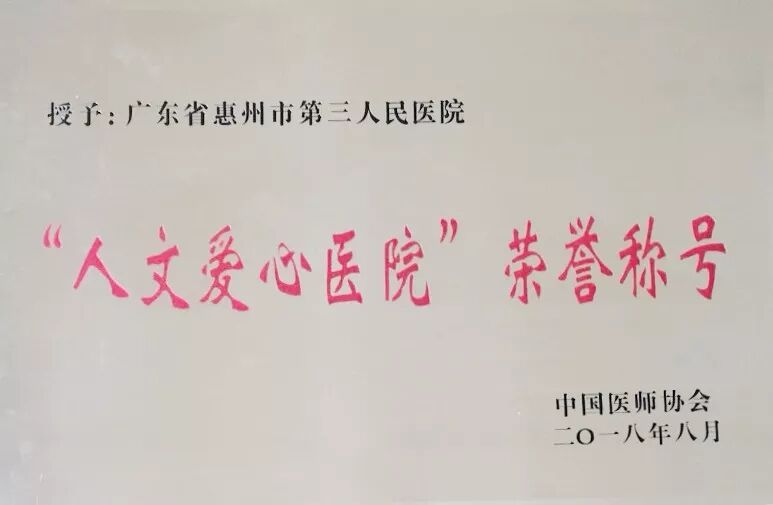 授予：广东省惠州市第三人民医院
“人文爱心医院”荣誉称号
中国医师协会
二〇一八年八月